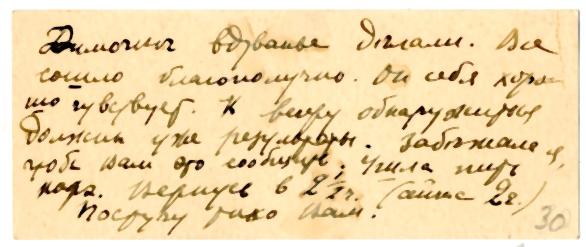 Димочкин вдуванье дѣлали. Все
сошло благополучно. Он себя хоро
шо чувствует. К вечеру обнаружится
должны уже результаты. Забѣжала я,
чтобы Вам это сообщить. Ушла
Вернусь в 2 1/2 ч. (сейчас 2 ч.)
Постучу тихо Вам.
30